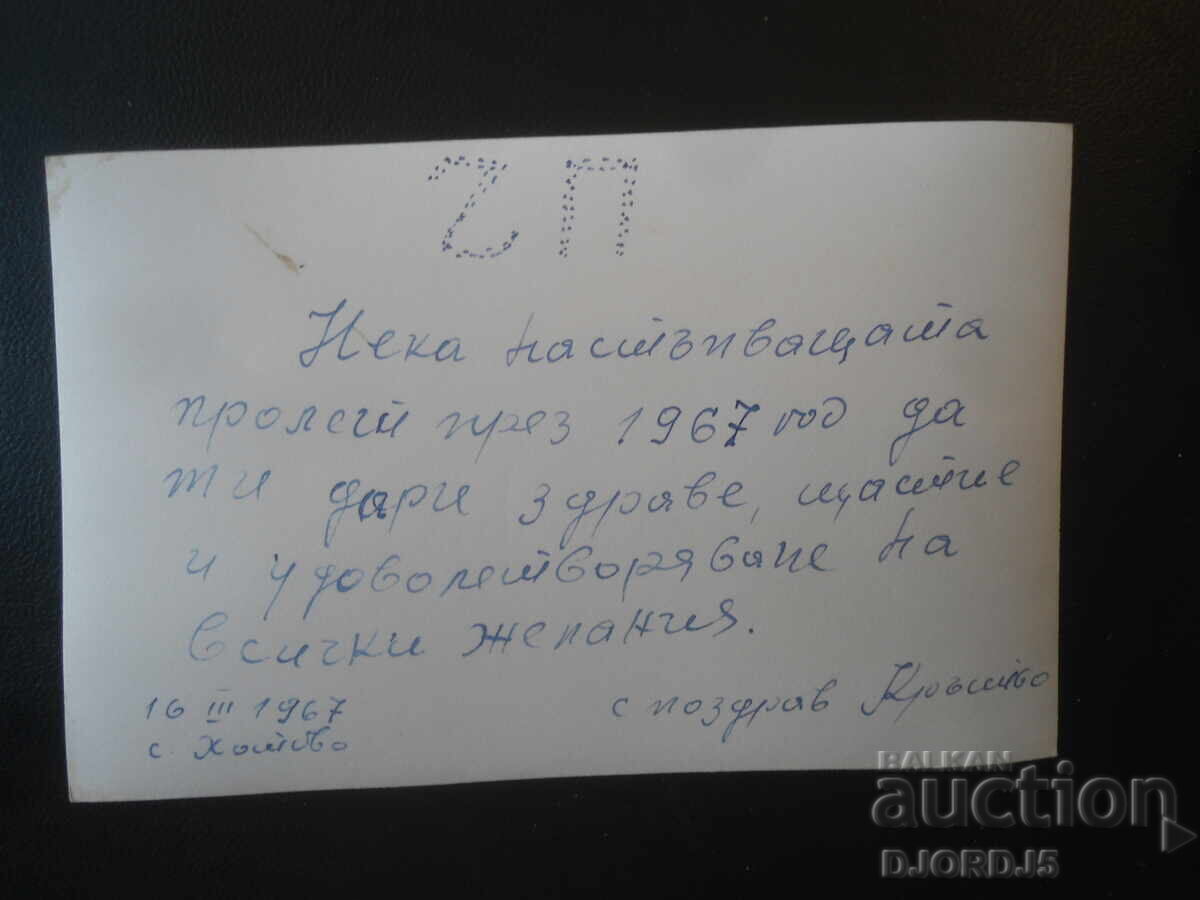 ЧП
Нека настъпващата
пролет през 1967 год да
ти дари здраве, щастие
и удоволетворяване на
всички желания.
16 III 1967
с поздрав Кръстьо
с. Хотово
BALKAN
auction
DJORDJ5